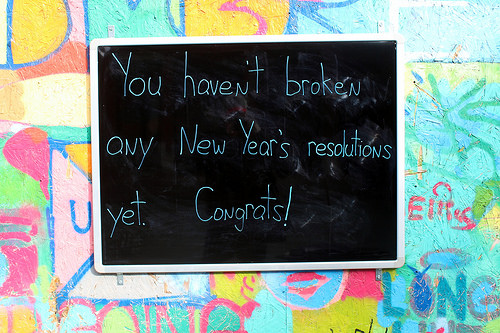 You haven't broken
any New Year's resolutions
yet. Congrats!